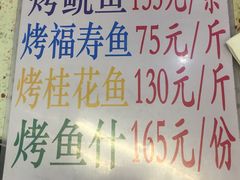 烤福寿鱼 75元/斤
烤桂花鱼 130元/斤
烤鱼什 165元/份